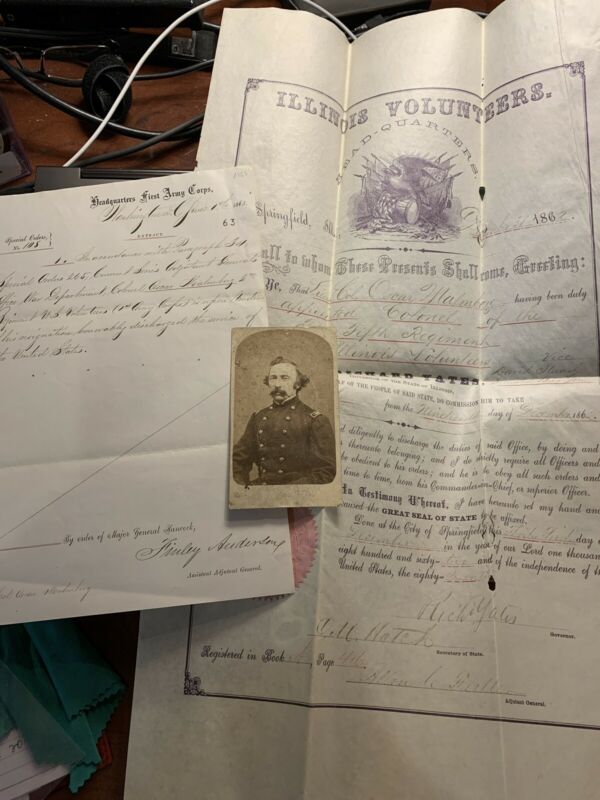 Headquarters First Army Corps,
Special Orders,
No. 105
EXTRACT.
63
1. In accordance with Paragraph 34
Special Orders 265, Current Series Adjutant Generals
War Department, Colonel Oscar Malmborg 2nd
Regiment U.S. Volunteers 1st Army Corps is
his resignation, honorably discharged the service of
United States.
By order of Major General Hancock,
Finley Anderson
Assistant Adjutant General.
Col Oscar Malmborg
ILLINOIS VOLUNTEERS.
HEAD-QUARTERS.
Springfield, Ill.
1862.
all to whom These Presents Shall come, Greeting:
Ye, That Lieut. Col. Oscar Malmborg having been duly
appointed Colonel of the
Fifth Regiment
Illinois Volunteers Vice
David Stuart
RICHARD YATES,
GOVERNOR OF THE STATE OF ILLINOIS,
OF THE PEOPLE OF SAID STATE, DO COMMISSION HIM TO TAKE
from the day of December 186
d diligently to discharge the duties of said Office, by doing and
thereunto belonging; and I do strictly require all Officers and
be obedient to his orders; and he is to obey all such orders and
time to time, from his Commander-in-Chief, or superior Officer.
In Testimony Whereof, I have hereunto set my hand and
caused the GREAT SEAL OF STATE affixed.
Done at the City of Springfield, this day of
December in the year of our Lord one thousand
eight hundred and sixty-two and of the independence of the
United States, the eighty-
Rich Yates
Governor.
O. M. Hatch
Secretary of State.
Registered in Book Page
Allen C. Fuller
Adjutant General.